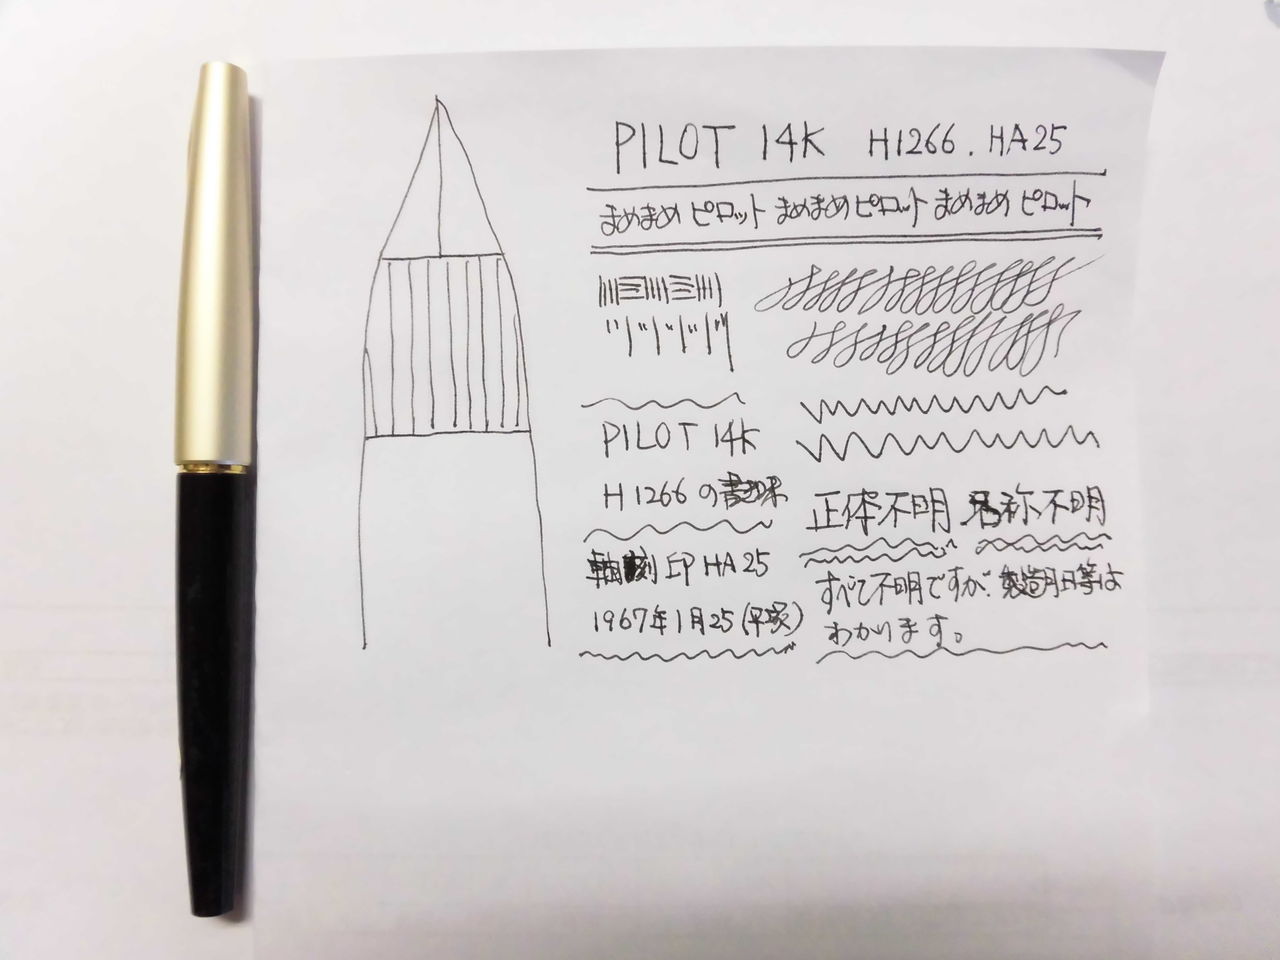 PILOT 14K H1266. HA25
まめまめ ピロット まめまめ ピロット まめまめ ピロット
PILOT 14K
H1266 の書き味
軸刻印 HA25
1967年1月25(平塚)
正体不明 名称不明
すべて不明ですが、製造月日等は
わかります。